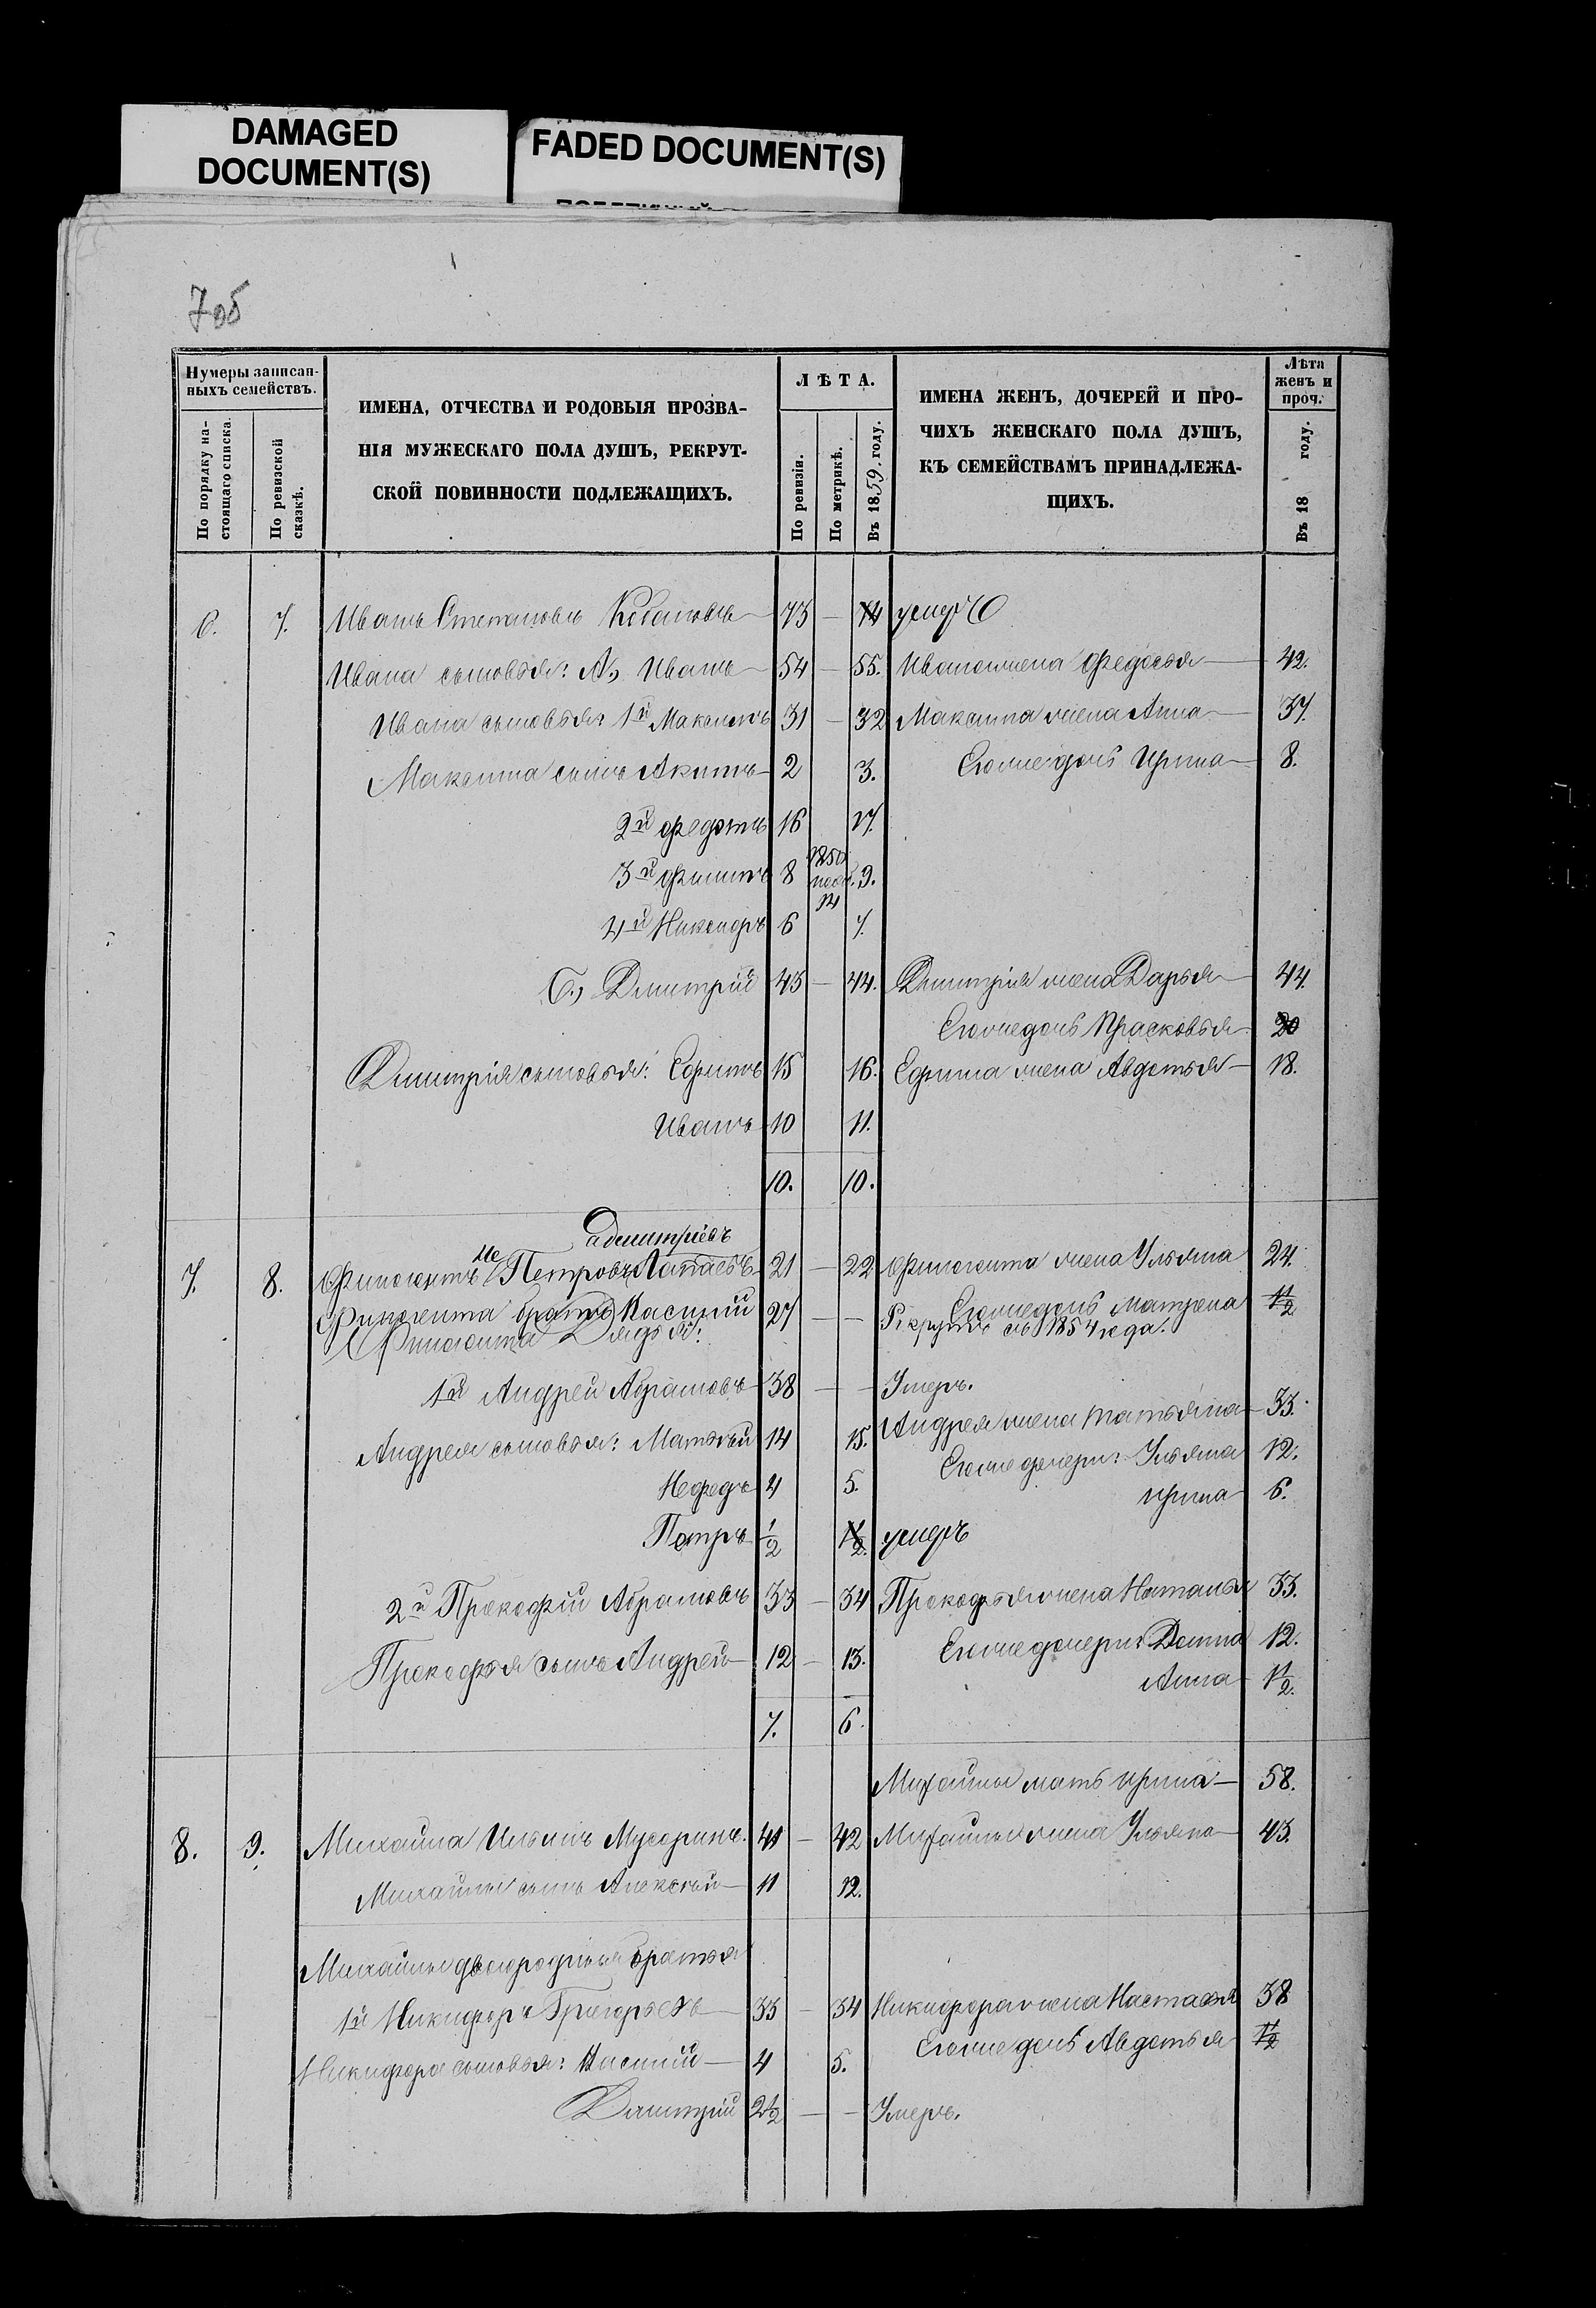 DAMAGED
DOCUMENT(S)
FADED DOCUMENT(S)
7об
Нумеры записан-
ныхъ семействъ.
По порядку на-
стоящаго списка.
По ревизской
сказкѣ.
ИМЕНА, ОТЧЕСТВА И РОДОВЫЯ ПРОЗВА-
НІЯ МУЖЕСКАГО ПОЛА ДУШЪ, РЕКРУТ-
СКОЙ ПОВИННОСТИ ПОДЛЕЖАЩИХЪ.
ЛѢТА.
По ревизіи.
По метрикѣ.
Въ 1859. году.
ИМЕНА ЖЕНЪ, ДОЧЕРЕЙ И ПРО-
ЧИХЪ ЖЕНСКАГО ПОЛА ДУШЪ,
КЪ СЕМЕЙСТВАМЪ ПРИНАДЛЕЖА-
ЩИХЪ.
Лѣта
женъ и
проч.
Въ 18 году.
6. 7. Иванъ Степановъ 73 — 74 умеръ
Ивана сыновья: А., Иванъ 54 — 55. Иванова жена Федосья 42.
Ивана сыновья: 1й Максимъ 31 — 32 Максима жена Анна 37.
Максима сынъ Акимъ 2 3. Его же дочь Ирина 8.
2й Федотъ 16 17.
3й Филипъ 8 1850 9.
4й Никаноръ 6 7.
Б., Дмитрій 43 — 44. Дмитрія жена Дарья 44.
Его же дочь Прасковья 20
Дмитрія сыновья: Ефимъ 15 16. Ефима жена Авдотья 18.
Иванъ 10 11.
10. 10.
Дмитріевъ
7. 8. Финогентъ Петровъ 21 — 22 Финогента жена Ульяна 24.
Финогента братъ Василій 27 — — Его же дочь Матрена 1/2
Рекрутъ съ 1854 года.
Финогента Дядья:
1й Андрей Абрамовъ 38 — — Умеръ.
Андрея жена Татьяна 33.
Андрея сыновья: Матвѣй 14 15.
Его же дочери: Ульяна 12.
Нефедъ 4 5.
Ирина 6.
Петръ 1/2 1 1/2. умеръ
2й Прокофій Абрамовъ 33 — 34 Прокофья жена Наталья 33.
Прокофья сынъ Андрей 12 — 13. Его же дочери: Домна 12.
Анна 1 1/2.
7. 6.
Михайлы мать Ирина 58.
8. 9. Михайла Ильинъ Мусоринъ. 41 — 42 Михайлы жена Ульяна 43.
Михайлы сынъ Алексѣй 11 12.
Михайлы двоюродные братья
1й Никифоръ Григорьевъ 33 — 34 Никифора жена Настасья 38
Никифора сыновья: Василій 4 5. Его же дочь Авдотья 1 1/2
Дмитрій 2 1/2 — — Умеръ.